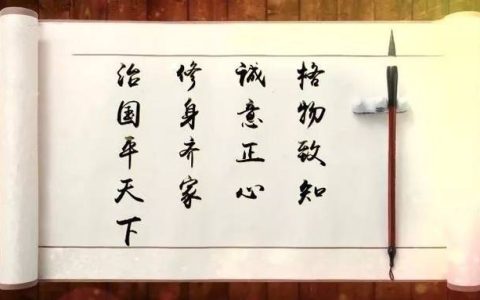 格物致知
诚意正心
修身齐家
治国平天下